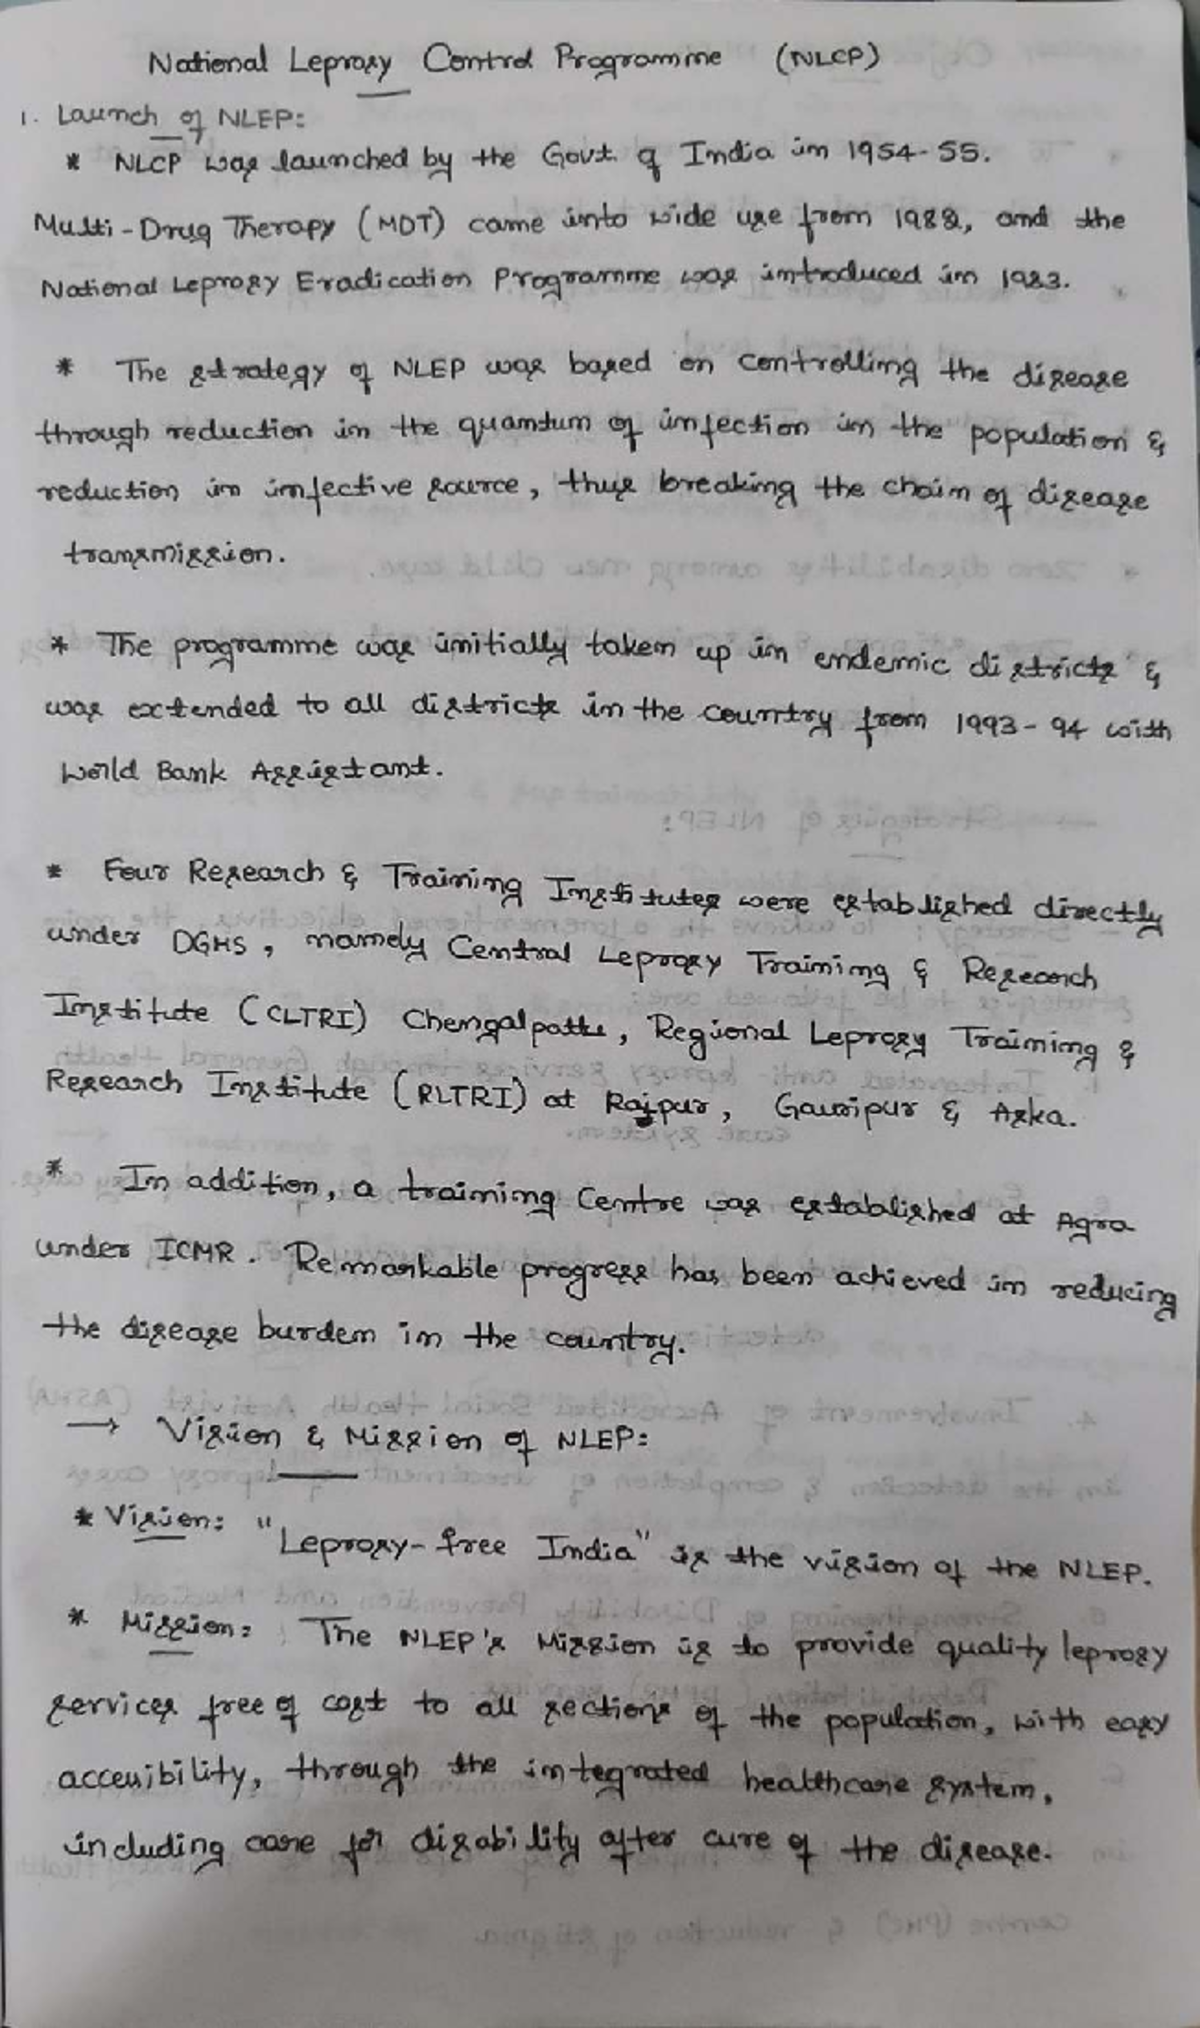 National Leprosy Control Programme (NLCP)
1. Launch of NLEP:
* NLCP was launched by the Govt. of India in 1954-55.
Multi-Drug Therapy (MDT) came into wide use from 1982, and the
National Leprosy Eradication Programme was introduced in 1983.
* The strategy of NLEP was based on controlling the disease
through reduction in the quantum of infection in the population &
reduction in infective source, thus breaking the chain of disease
transmission.
* The programme was initially taken up in endemic districts &
was extended to all districts in the country from 1993-94 with
World Bank Assistant.
* Four Research & Training Institutes were established directly
under DGHS, namely Central Leprosy Training & Research
Institute (CLTRI) Chengalpattu, Regional Leprosy Training &
Research Institute (RLTRI) at Raipur, Gauripur & Aska.
* In addition, a training Centre was established at Agra
under ICMR. Remarkable progress has been achieved in reducing
the disease burden in the country.
→ Vision & Mission of NLEP:
* Vision: "Leprosy-free India" is the vision of the NLEP.
* Mission: The NLEP's Mission is to provide quality leprosy
services free of cost to all sections of the population, with easy
accessibility, through the integrated healthcare system,
including care for disability after cure of the disease.